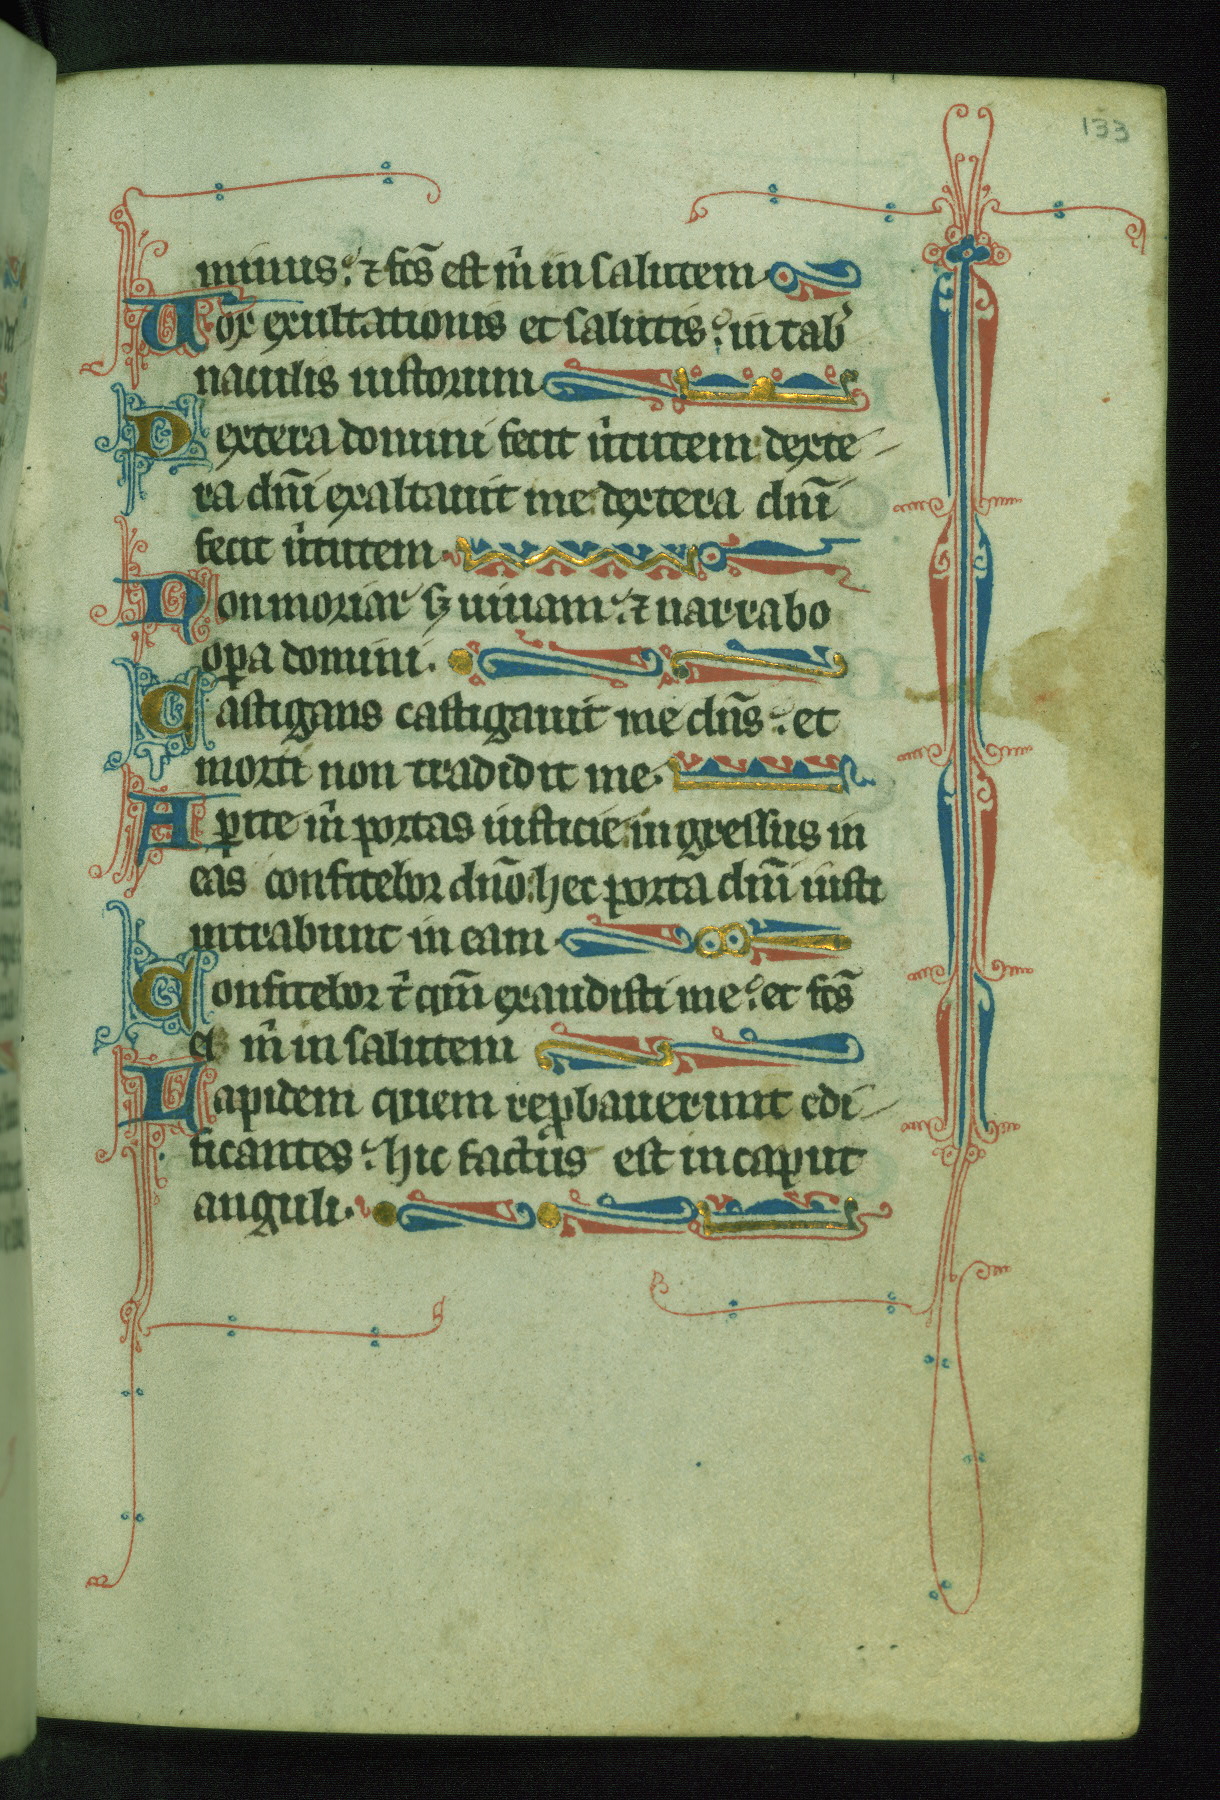 133
minus. ⁊ fc̄s est m̄ in salutem
Uox exultationis et salutis. in tab̾
naculis iustorum
Dextera domini fecit u̾tutem dexte
ra dn̄i exaltauit me dextera dn̄i
fecit u̾tutem.
Non moriar sꝫ uiuam. ⁊ narrabo
oꝑa domini.
Castigans castigauit me dn̄s. et
morti non tradidit me.
Aꝑite m̄ portas iusticie ingressus in
eas confitebor dn̄o. hec porta dn̄i iusti
intrabunt in eam
Confitebor t̄ qm̄ exaudisti me. et fc̄s
es m̄ in salutem
Lapidem quem reꝓbauerunt edi
ficantes. hic factus est in caput
anguli.